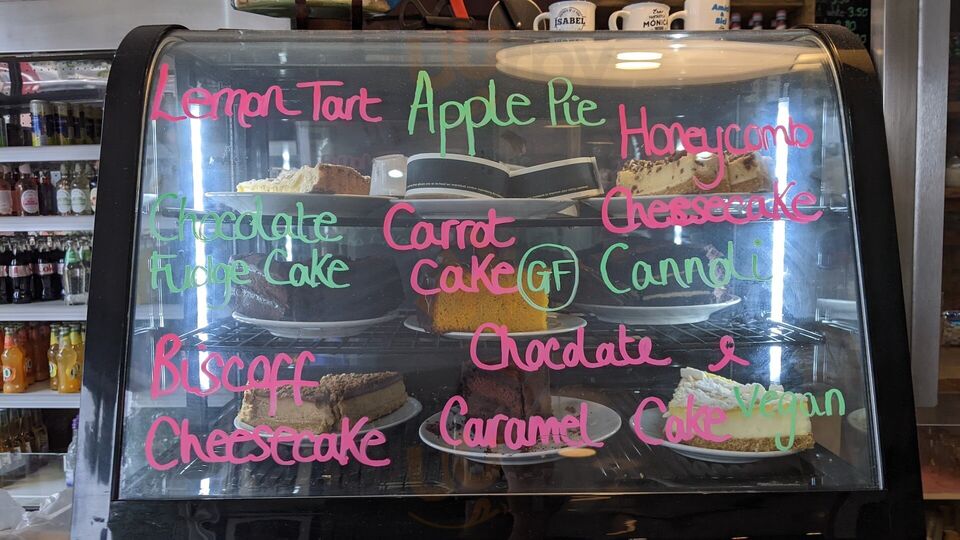 ISABEL
MÓNICA
3.50
Lemon Tart
Apple Pie
Honeycomb
Cheesecake
Chocolate
Fudge Cake
Carrot
Cake GF
Cannoli
Biscoff
Cheesecake
Chocolate &
Caramel Cake Vegan